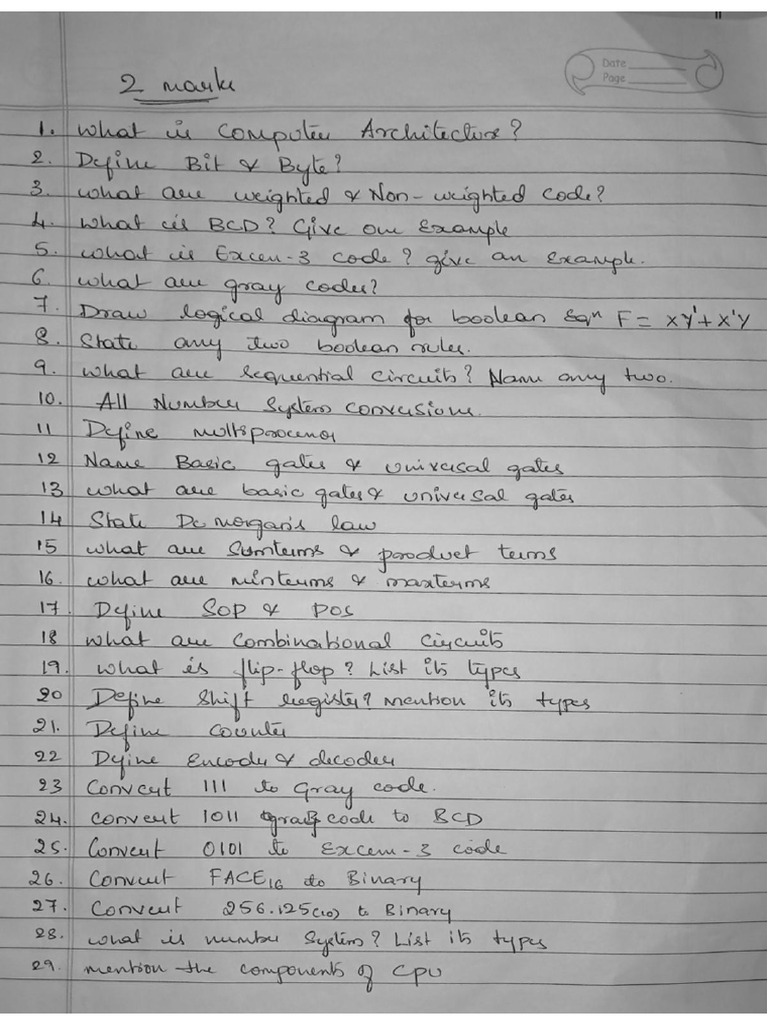 Date
Page
2 marks
1. What is Computer Architecture?
2. Define Bit & Byte?
3. what are weighted & Non-weighted code?
4. what is BCD? Give one Example
5. what is Excess-3 code? give an Example.
6. what are gray codes?
7. Draw logical diagram for boolean Eqn F = XY'+X'Y
8. State any two boolean rules.
9. what are sequential circuits? Name any two.
10. All Number System conversions.
11 Define multiprocessor
12 Name Basic gates & universal gates
13 what are basic gates & universal gates
14 State De morgan's law
15 what are Sumterms & product terms
16. what are minterms & maxterms
17. Define SOP & POS
18 what are Combinational Circuits
19. what is flip-flop? List its types
20 Define Shift Register? mention its types
21. Define Counter
22 Define Encoder & decoder
23 Convert 111 to Gray code.
24. convert 1011 code to BCD
25. Convert 0101 to Excess-3 code
26. Convert FACE16 to Binary
27. Convert 256.125(10) to Binary
28. what is number System? List its types
29. mention the components of CPU